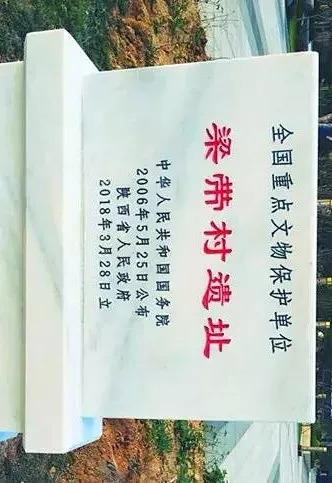 全国重点文物保护单位
梁带村遗址
中华人民共和国国务院
2006年5月25日公布
陕西省人民政府
2018年3月28日立